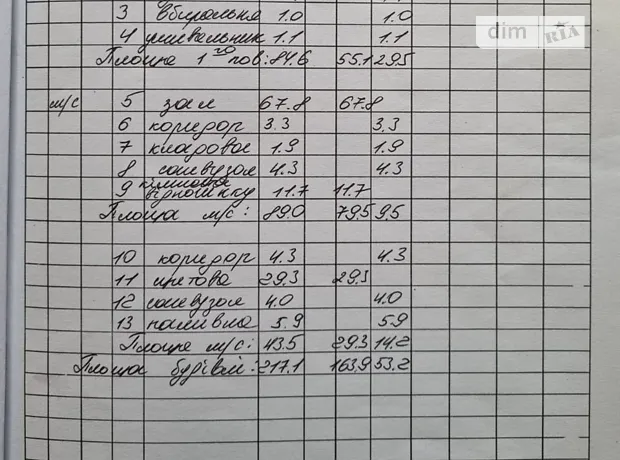 3 Вбиральня 1.0 1.0
4 умивальник 1.1 1.1
Площа 1го пов: 84.6 55.1 29.5
м/с 5 зал 67.8 67.8
6 коридор 3.3 3.3
7 кладова 1.9 1.9
8 санвузол 4.3 4.3
9 кімната відпочинку 11.7 11.7
Площа м/с: 89.0 79.5 9.5
10 коридор 4.3 4.3
11 житлова 29.3 29.3
12 санвузол 4.0 4.0
13 паливна 5.9 5.9
Площа м/с: 43.5 29.3 14.2
Площа будівлі: 217.1 163.9 53.2
dim RIA